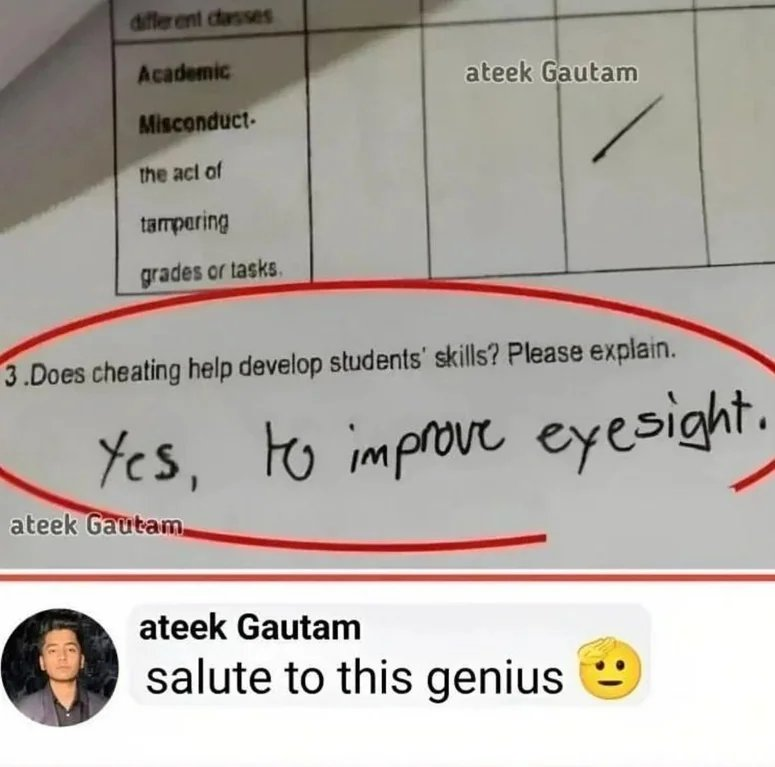 different classes
Academic
ateek Gautam
Misconduct-
the act of
tampering
grades or tasks.
3 .Does cheating help develop students' skills? Please explain.
Yes, to improve eyesight.
ateek Gautam
ateek Gautam
salute to this genius 🫡